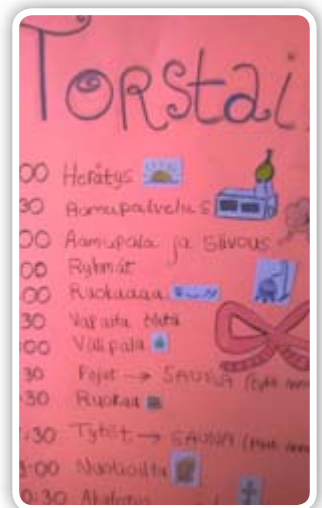 TORStai
00 Herätys
30 Aamupalvelus
00 Aamupala ja Siivous
00 Ryhmät
00 Ruokaaaa
30 Vapaata
:00 Välipala
30 Pojat → SAUNA
:30 Ruokaa
:30 Tytöt → SAUNA
:00 Nuotioilta
0:30